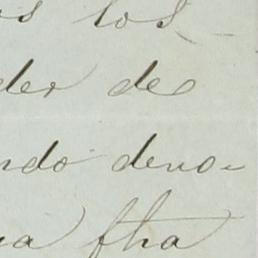 os los
der de
ndo deno-
ua fha